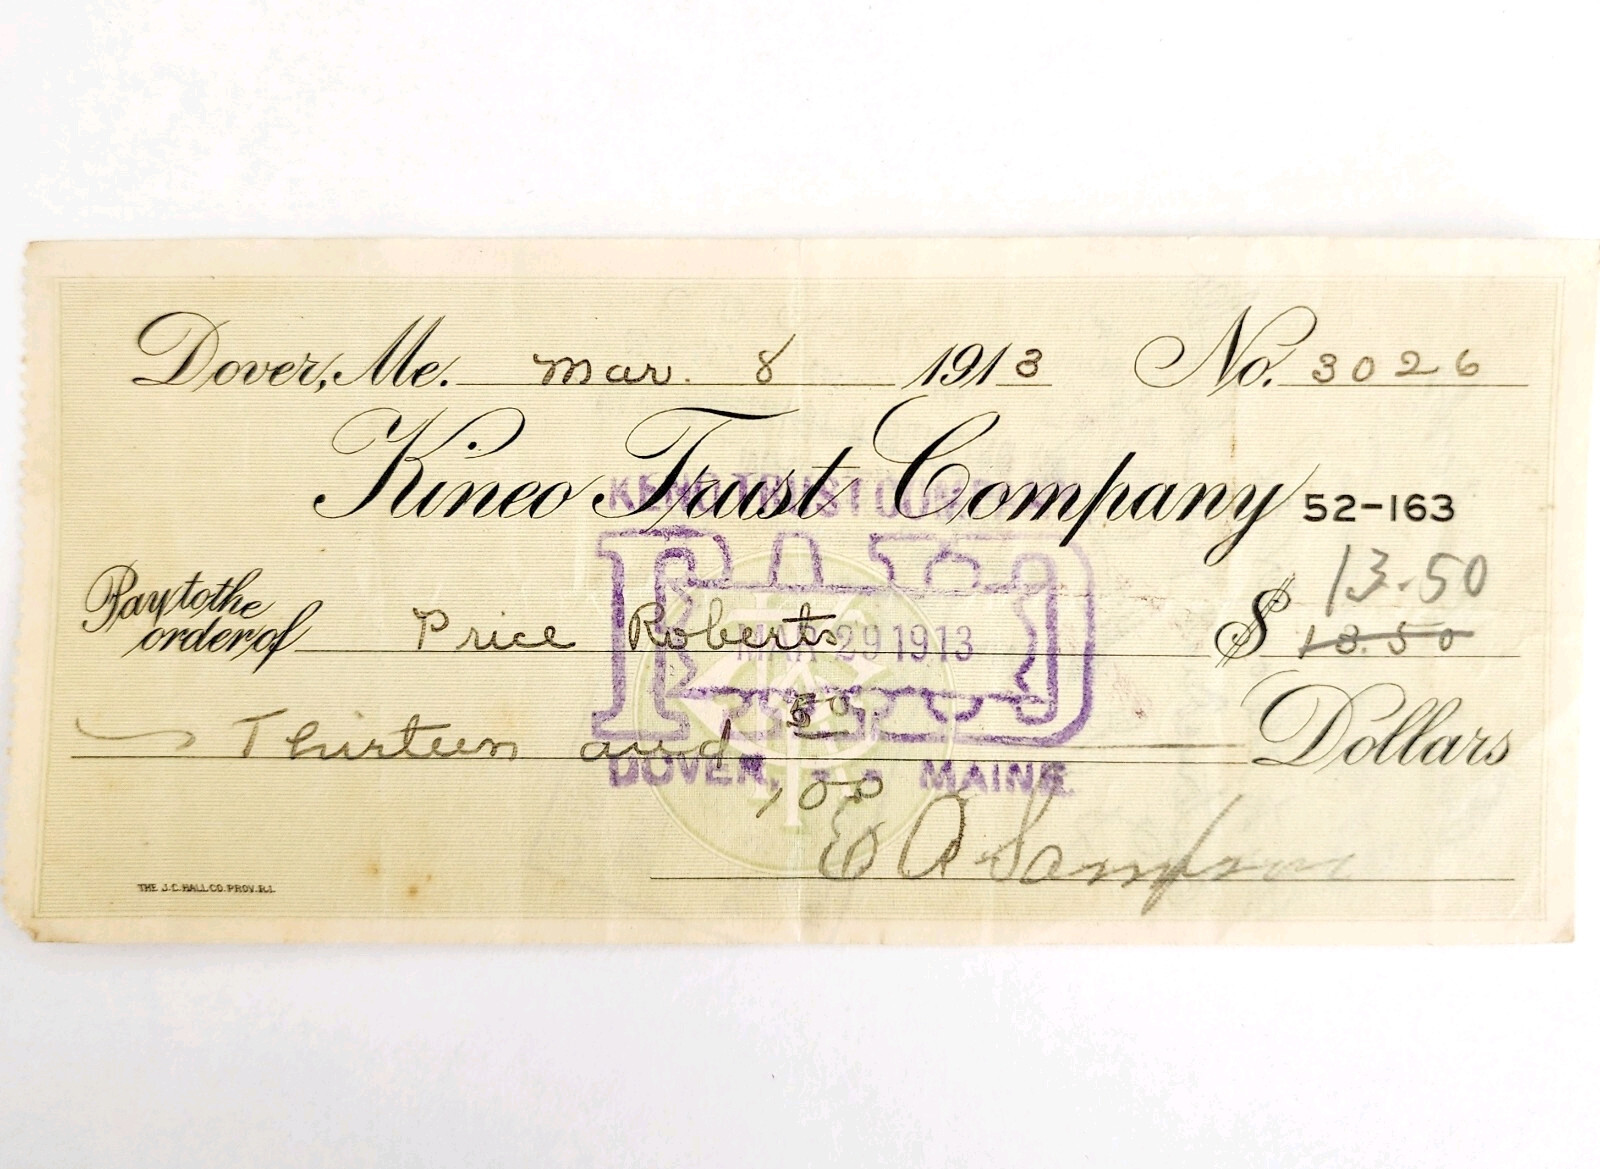 Dover, Me. Mar. 8 1913 No. 3026
Kineo Trust Company 52-163
KINEO TRUST COMPANY
13.50
Pay to the order of Price Roberts $ 13.50
PAID
MAR 29 1913
Thirteen and 50/100 Dollars
DOVER, MAINE.
E A Sampson
THE J.C. HALL CO. PROV. R.I.